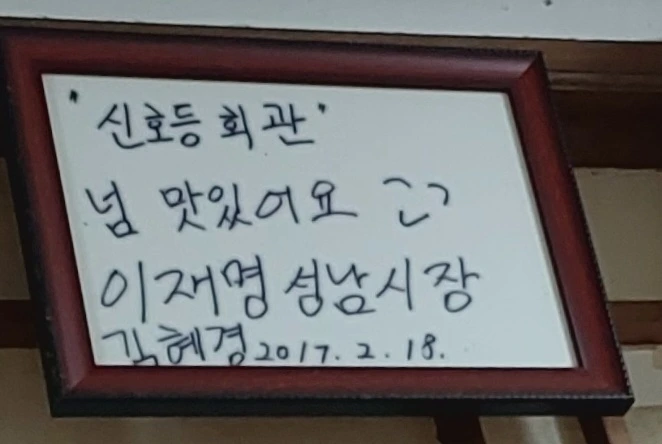 '신호등 회관'
넘 맛있어요
이재명 성남시장
김혜경 2017. 2. 18.